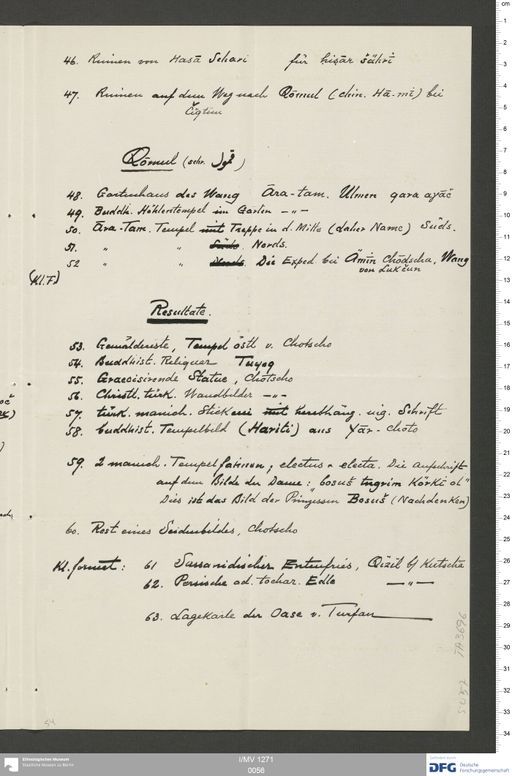 46. Ruinen von Hasā Schari für hiṣār šähri
47. Ruinen auf dem Weg nach Qōmul (chin. Hā-mī) bei
Čiqtim
Qōmul (schr. قمول)
48. Gartenhaus des Wang Āra-tam. Ulmen qara aγāč
49. Buddh. Höhlentempel im Garten -"-
50. Āra-Tam. Tempel mit Treppe in d. Mitte (daher Name) Süds.
51. " " Süds Nords.
52 " " Nords. Die Exped bei Āmīn Chōdscha, Wang
von Lukčun
(Kl. F.)
Resultate.
53. Gemälderiste, Tempel östl v. Chotscho
54. Buddhist. Reliquar Tuyoq
55. Graecisirende Statue, Chotscho
56. Christl. türk. Wandbilder -"-
57. türk. manich. Stickerei mit herabhäng. uig. Schrift
58. buddhist. Tempelbild (Hariti) aus Yār-choto
59. 2 manich. Tempelfahnen; electus & electa. Die Aufschrift
auf dem Bilde der Dame: "bosuš tngrim körki ol"
Dies ist das Bild der Prinzessin Bosuš (Nachdenken)
60. Rest eines Seidenbildes, Chotscho
Kl. format: 61 Sassanidischer Entenfries, Qizil b/ Kutscha
62. Persische od. tochar. Edle -"-
63. Lagekarte der Oase v. Turfan
TA 3696
54
Ethnologisches Museum
Staatliche Museen zu Berlin
I/MV 1271
0056
DFG Deutsche
Forschungsgemeinschaft